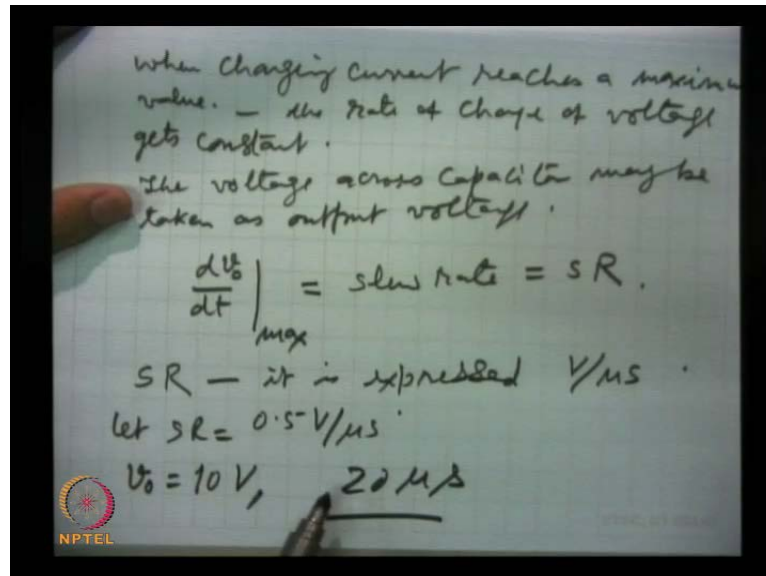 when charging current reaches a maximu
value. — the rate of change of voltage
gets constant.
The voltage across Capacitor may be
taken as output voltage.
dv₀/dt |max = slew rate = SR.
SR — it is expressed V/μs.
let SR = 0.5 V/μs
v₀ = 10 V, 20 μs
NPTEL